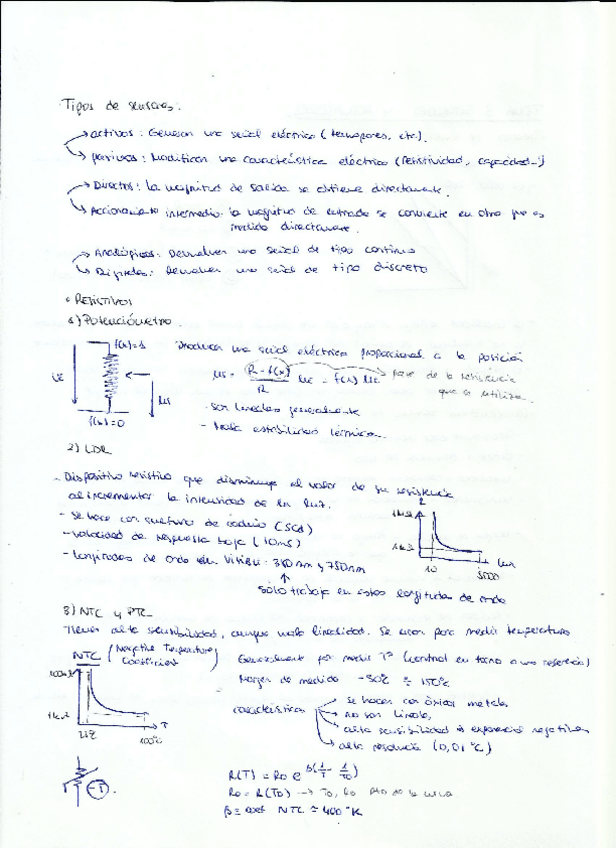 Tipos de sensores:
activos: Generan una señal eléctrica (termopares, etc).
pasivos: Modifican una característica eléctrica (resistividad, capacidad...)
Directos: la magnitud de salida se obtiene directamente.
Accionamiento intermedio: la magnitud de entrada se convierte en otra que es
medida directamente.
Analógicos: Devuelven una señal de tipo continuo
Digitales: Devuelven una señal de tipo discreto
• RESISTIVOS
1) Potenciómetro.
f(x)=1 Producen una señal eléctrica proporcional a la posición
Us = (R·f(x))/R Ue = f(x) Ue parte de la resistencia
que se utiliza.
Ue
Us
- Son lineales generalmente
f(x)=0
- Mala estabilidad térmica.
2) LDR
- Dispositivo resistivo que disminuye el valor de su resistencia
al incrementar la intensidad de la luz.
- Se hace con sulfuro de cadmio (SCd)
- velocidad de respuesta baja (10ms)
- longitudes de onda visible: 380nm y 750nm
10 lux
sólo trabaja en estas longitudes de onda
3) NTC y PTC
Tienen alta sensibilidad, aunque mala linealidad. Se usan para medir temperatura
NTC (Negative Temperature
Coefficient)
Generalmente por medir Tª (control en torno a una referencia)
Margen de medida -50ºC ≃ 150ºC
características
se hacen con óxidos metal.
no son lineales,
alta sensibilidad exponencial negativa
alta resolución (0,01 ºC)
T
100ºC
-T
R(T) = Ro e^B(1/T - 1/To)
Ro = R(To) → To, Ro pto de la curva
β = coef NTC ≃ 400 ºK